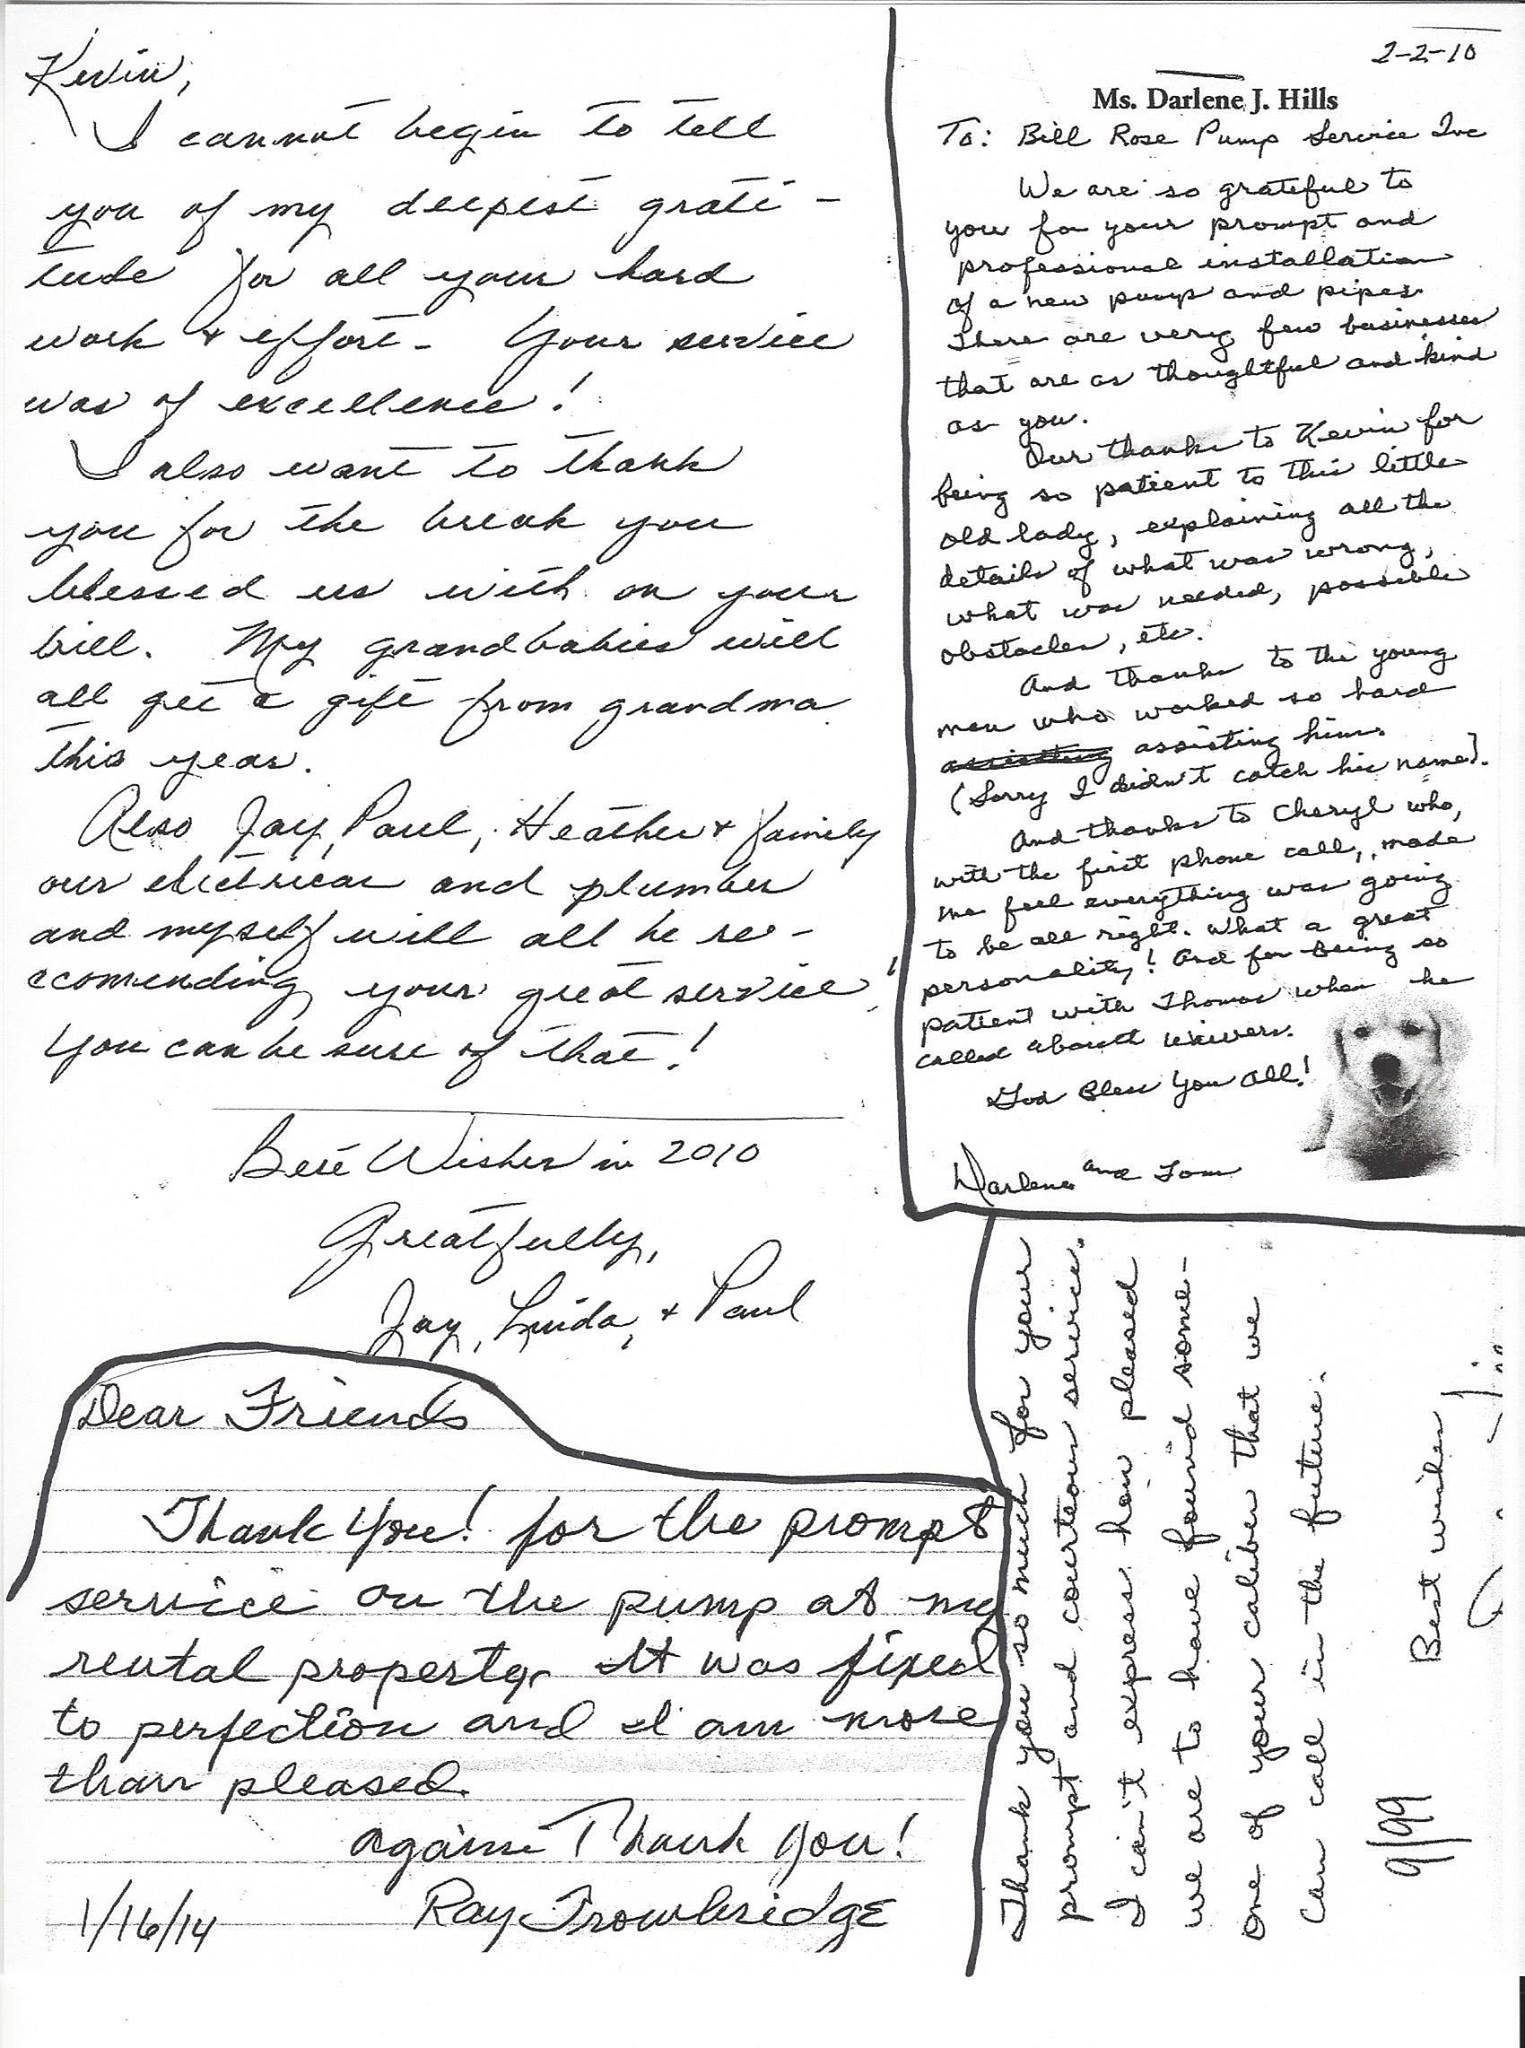 Kevin,
I cannot begin to tell
you of my deepest grati-
tude for all your hard
work & effort- Your service
was of excellence!
I also want to thank
you for the break you
blessed us with on your
bill. My grandbabies will
all get a gift from grandma
this year.
Also Jay, Paul, Heather & family
our electrican and plumber
and myself will all be re-
ccomending your great service!
You can be sure of that!
Best Wishes in 2010
Greatfully,
Jay, Linda, & Paul
2-2-10
Ms. Darlene J. Hills
To: Bill Rose Pump Service Inc
We are so grateful to
you for your prompt and
professional installation
of a new pump and pipes.
There are very few businesses
that are as thoughtful and kind
as you.
Our thanks to Kevin for
being so patient to this little
old lady, explaining all the
details of what was wrong,
what was needed, possible
obstacles, etc.
And thanks to the young
man who worked so hard
assisting him.
(Sorry I didn't catch his name).
And thanks to Cheryl who,
with the first phone call, made
me feel everything was going
to be all right. What a great
personality! And for being so
patient with Thomas when he
called about waivers.
God Bless You All!
Darlene and Tom
Dear Friends
Thank You! for the prompt
service on the pump at my
rental property. It was fixed
to perfection and I am more
than pleased.
again Thank You!
1/16/14 Ray Trowbridge
Thank you so much for your
prompt and courteous service.
I can't express how pleased
we are to have found some-
one of your caliber that we
can call in the future.
9/99 Best wishes